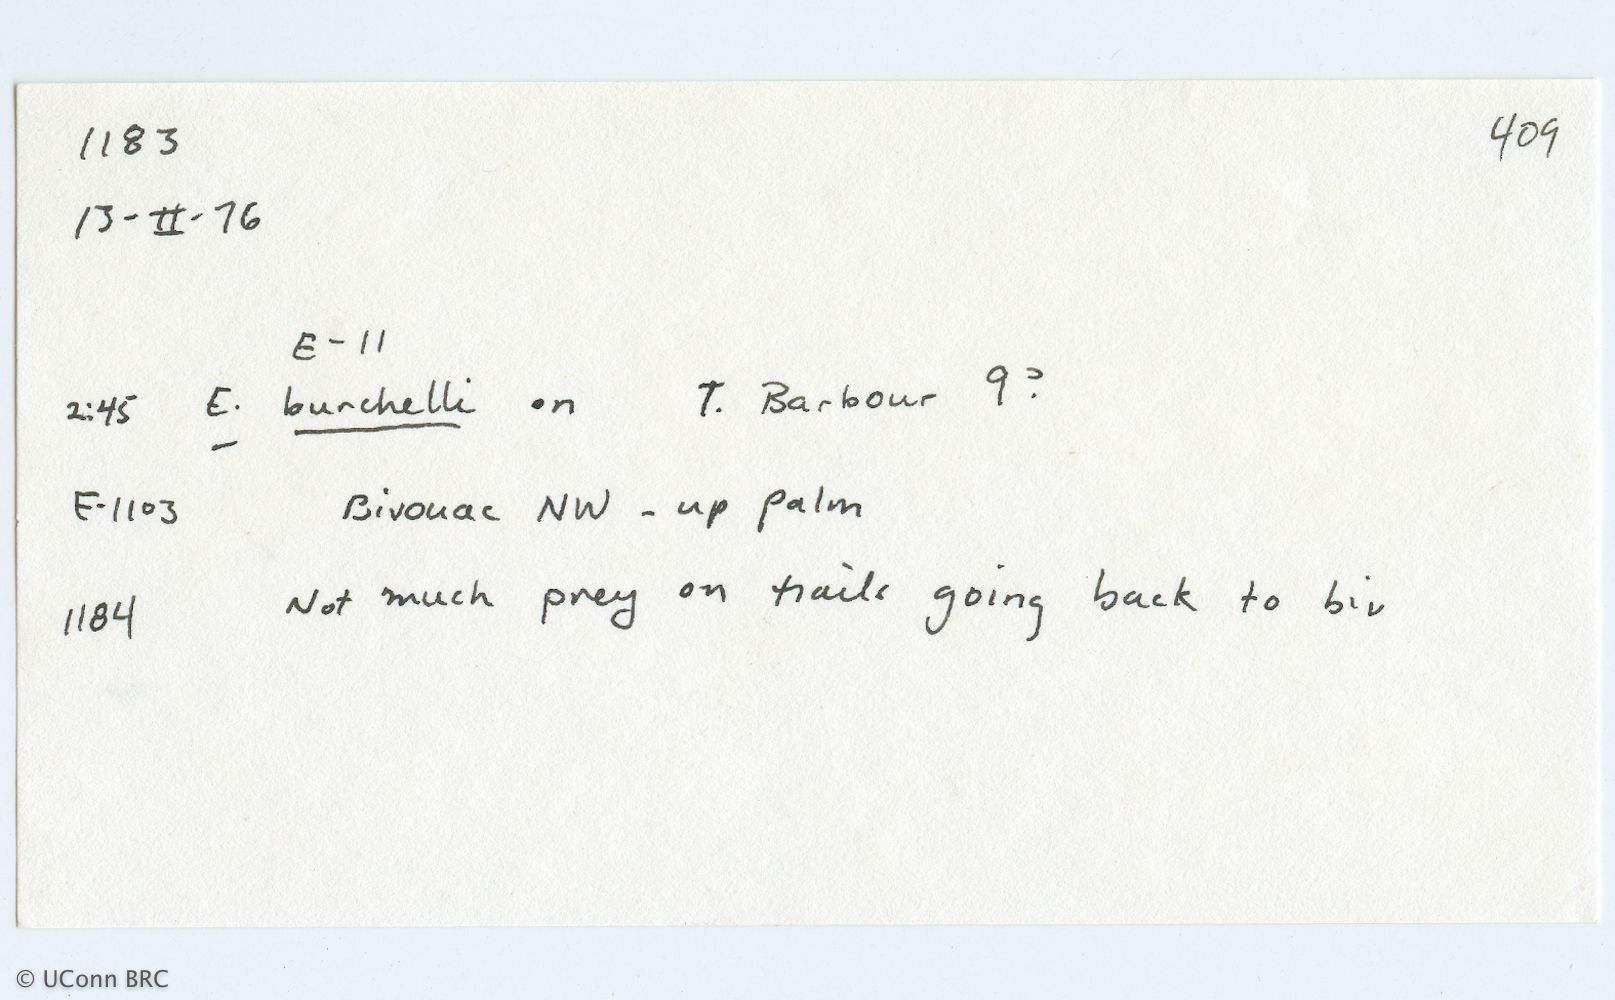 1183 409
13-II-76
E-11
2:45 E. burchelli on T. Barbour 9?
E-1103 Bivouac NW - up palm
1184 Not much prey on trails going back to biv
© UConn BRC